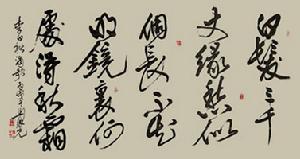 白髮三千
丈緣愁似
個長不知
明鏡裏何
處得秋霜
李白秋浦歌